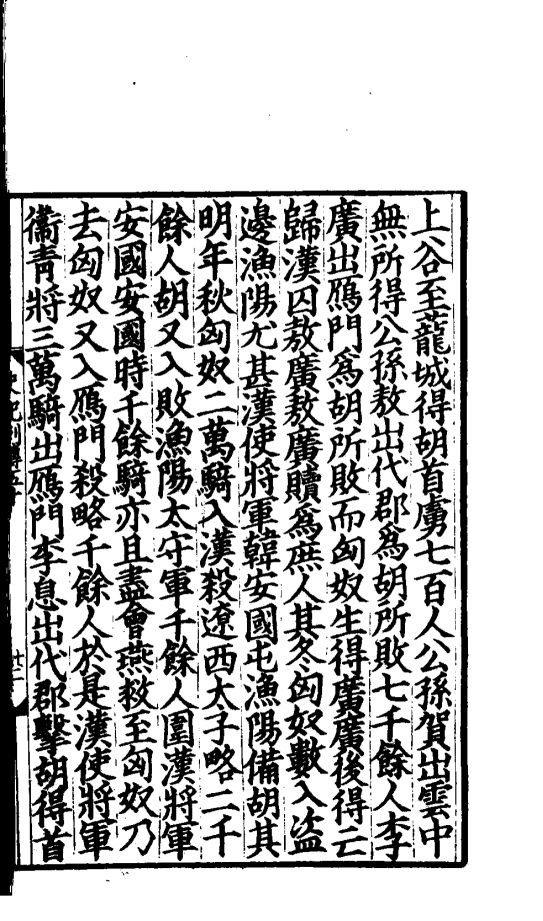 上谷至蘢城得胡首虜七百人公孫賀出雲中
無所得公孫敖出代郡爲胡所敗七千餘人李
廣出鴈門爲胡所敗而匈奴生得廣廣後得亡
歸漢囚敖廣敖廣贖爲庶人其冬匈奴數入盗
邊漁陽尤甚漢使將軍韓安國屯漁陽備胡其
明年秋匈奴二萬騎入漢殺遼西太子略二千
餘人胡又入敗漁陽太守軍千餘人圍漢將軍
安國安國時千餘騎亦且盡會燕救至匈奴乃
去匈奴又入鴈門殺略千餘人於是漢使將軍
衞青將三萬騎出鴈門李息出代郡擊胡得首